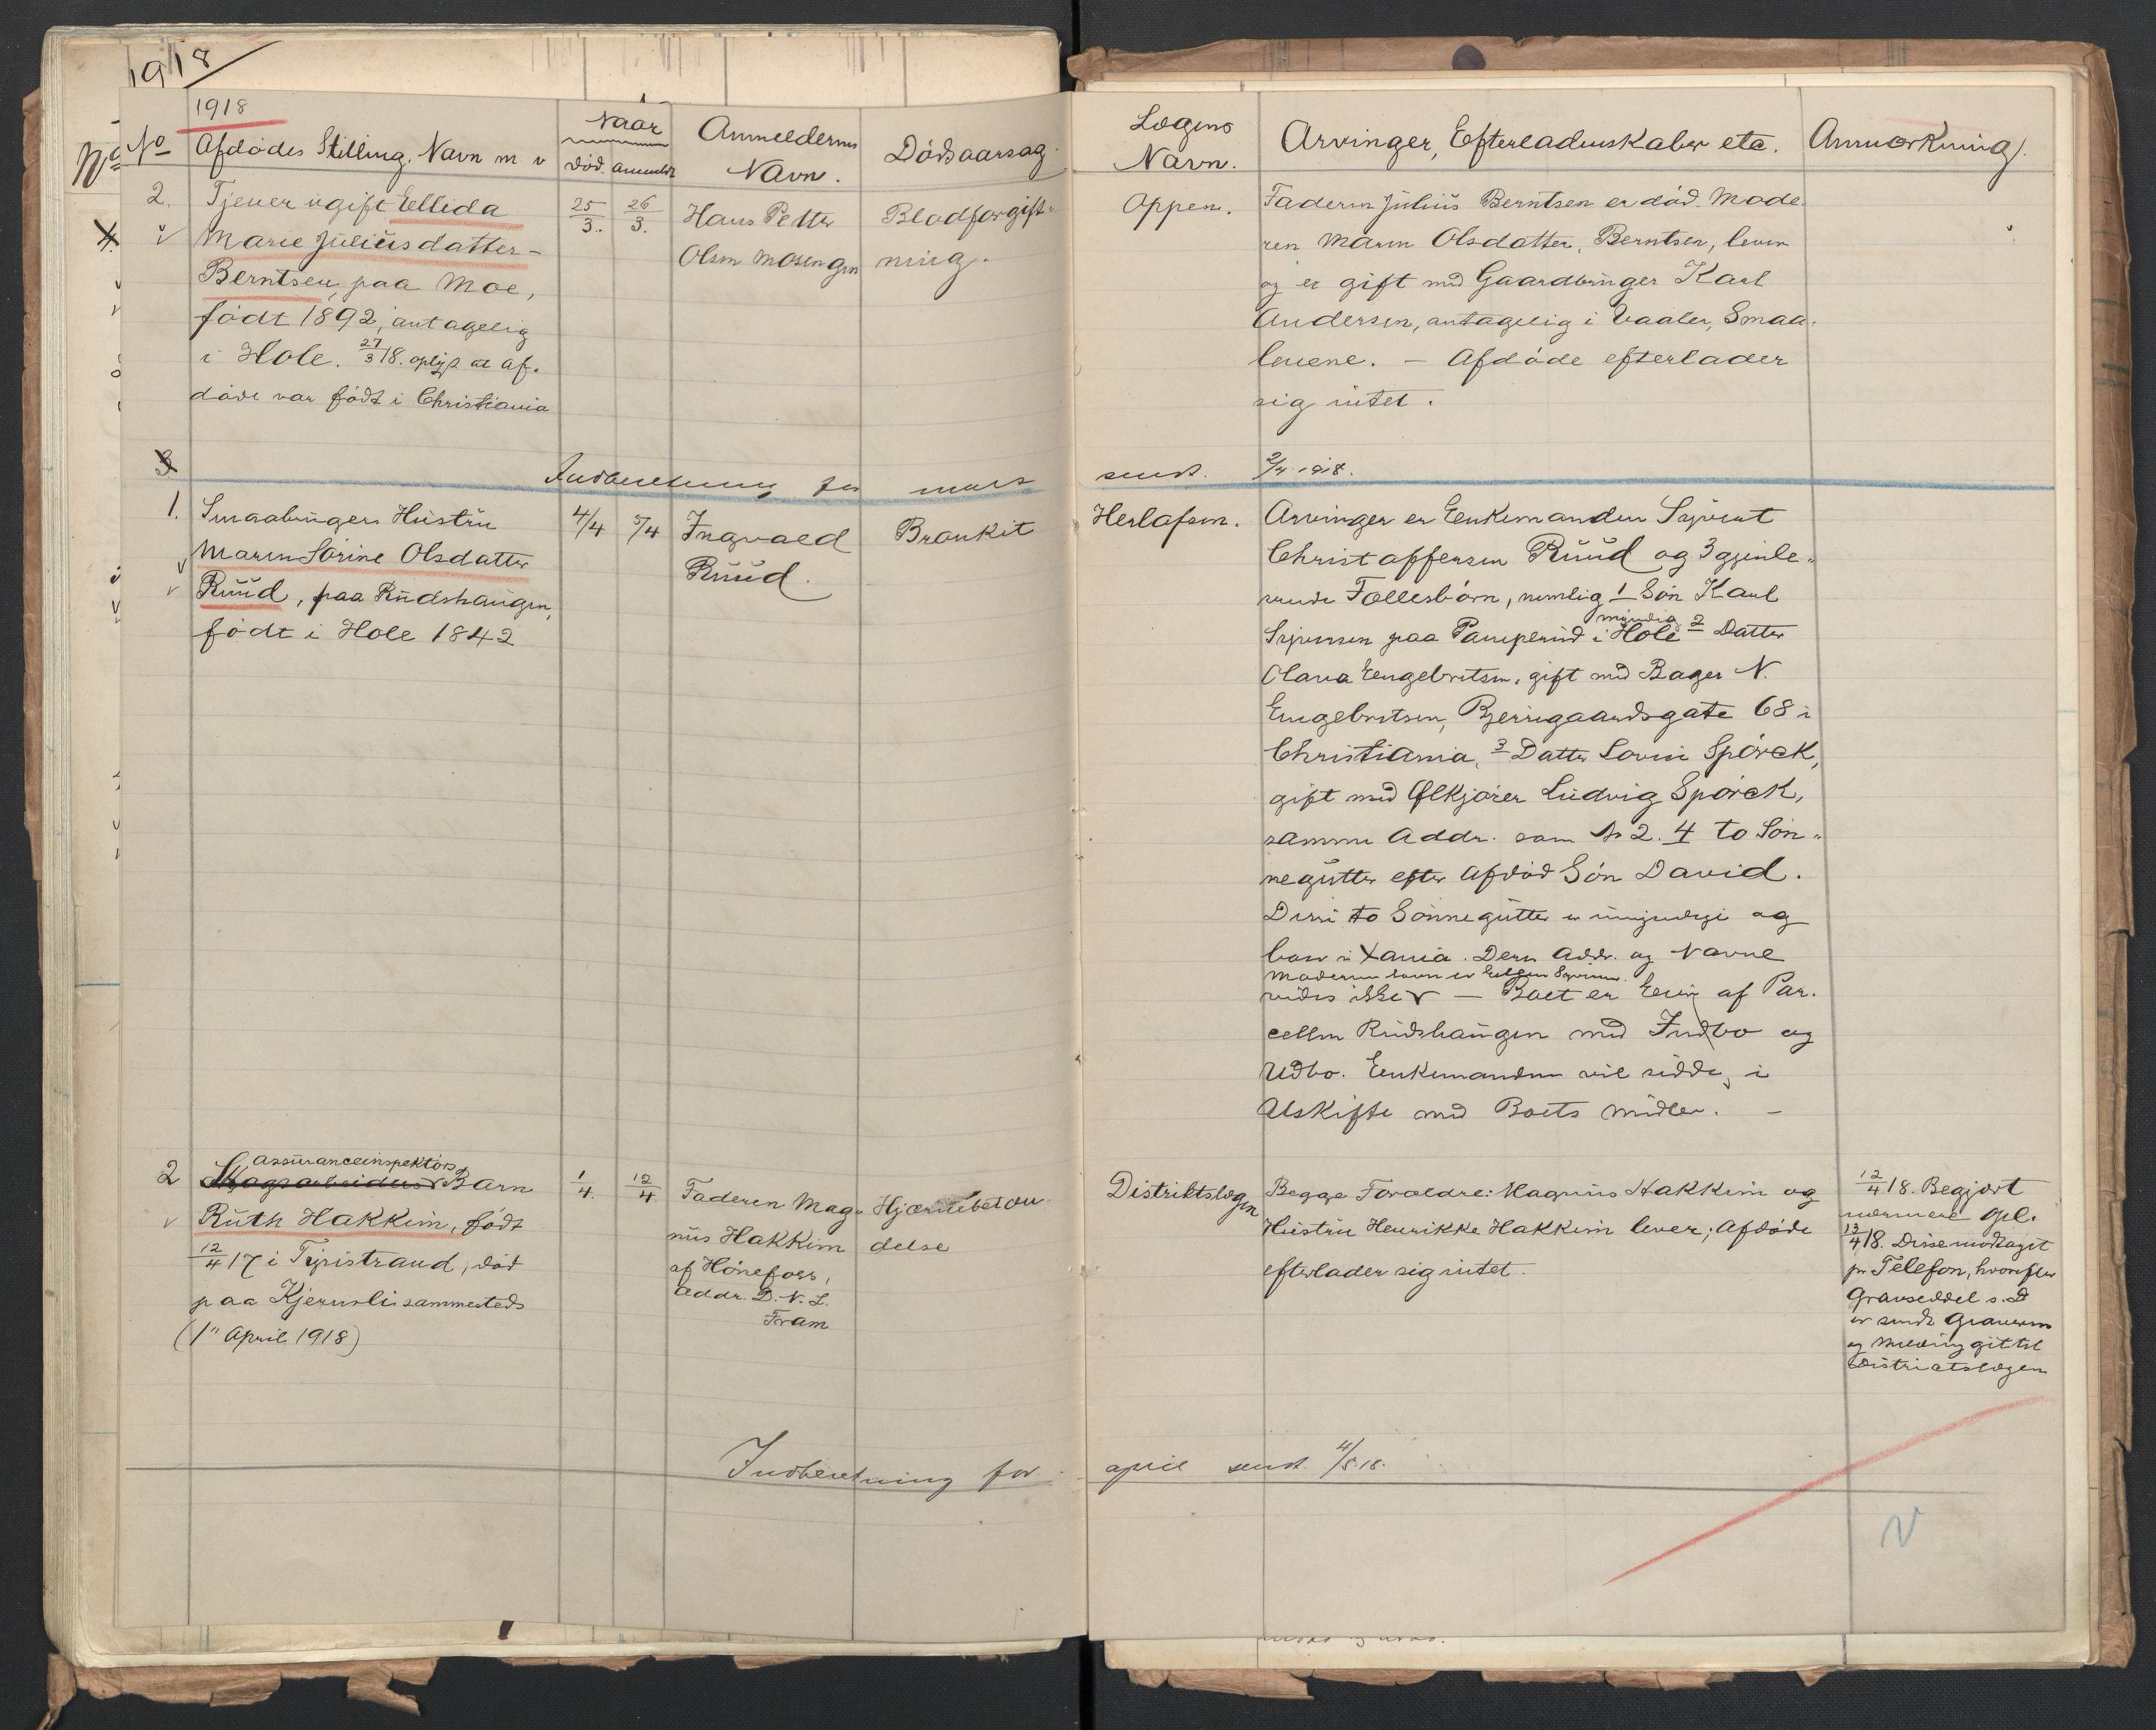 1918
1918
No
No Afdödes Stilling, Navn m v
Naar
Död. anmeldt
Anmelderens
Navn.
Dödsaarsag.
Lægens
Navn.
Arvinger, Efterladenskaber etc.
Anmærkning.
2. Tjener ugift Ellida
Marie Juliusdatter-
Berntsen, paa Moe,
født 1892, antagelig
i Hole. 27/3 18. oplyst at af-
döde var födt i Christiania
25/3. 26/3.
Hans Petter
Olsen Mosengen
Blodforgift-
ning.
Oppen.
Faderen Julius Berntsen er död. Mode
ren Maren Olsdatter, Berntsen, lever
og er gift med Gaardbruger Karl
Andersen, antagelig i Vaaler, Smaa-
lenene. - Afdöde efterlader
sig intet.
3
Indberetning for mars
sendt. 2/4 1918.
1. Smaabrugers Hustru
Maren Sörine Olsdatter
Ruud, paa Rudshaugen,
födt i Hole 1842
4/4 5/4
Ingvald
Ruud.
Bronkit
Herlofsen.
Arvinger er Enkemanden Syvert
Christoffersen Ruud og 3 gjenle-
vende Fællesbörn, nemlig 1 Sön Karl
myndig
Syversen paa Pamperud i Hole 2 Datter
Olava Engebretsen, gift med Bager N.
Engebretsen, Bjerregaardsgate 68 i
Christiania, 3 Datter Lovise Spörck,
gift med Ølkjører Ludvig Spörck,
samme Addr. som No 2. 4 to Sön-
negutter efter afdöd Sön David.
Disse to Sönnegutter er umyndige og
bor i Xania. Deres Addr. og Navne
vides ikke - Boet er Eier af Par-
cellen Rudshaugen med Indbo og
Udbo. Enkemanden vil sidde i
Uskifte med Boets midler. -
2 Assuranceinspektörs
Skogsarbeiders Barn
Ruth Hakkim, födt
12/4 17 i Tyristrand, död
paa Kjernsli sammesteds
(1" April 1918)
1/4. 12/4.
Faderen Mag-
nus Hakkim
af Hönefoss,
Addr. D. N. L.
Fram
Hjærnebetæn-
delse
Distriktslægen
Begge Forældre: Magnus Hakkim og
Hustru Henrikke Hakkim lever; Afdöde
efterlader sig intet.
12/4 18. Begjært
nærmere Opl.
13/4 18. Disse modtaget
pr Telefon, hvorefter
Gravseddel s. D
er sendt Graveren
og melding git til
Distriktslægen
Indberetning for
april sendt. 4/5 18.